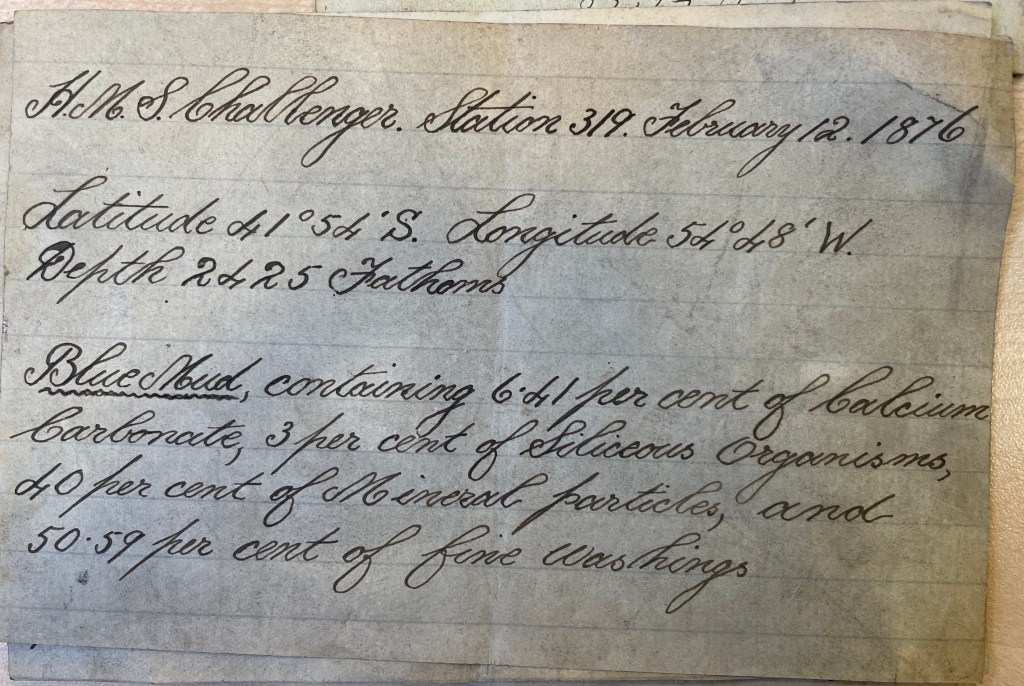 H.M.S. Challenger. Station 319. February 12. 1876
Latitude 41° 54' S. Longitude 54° 48' W.
Depth 2425 Fathoms
Blue Mud, containing 6·41 per cent of Calcium
Carbonate, 3 per cent of Siliceous Organisms,
40 per cent of Mineral particles, and
50·59 per cent of fine washings